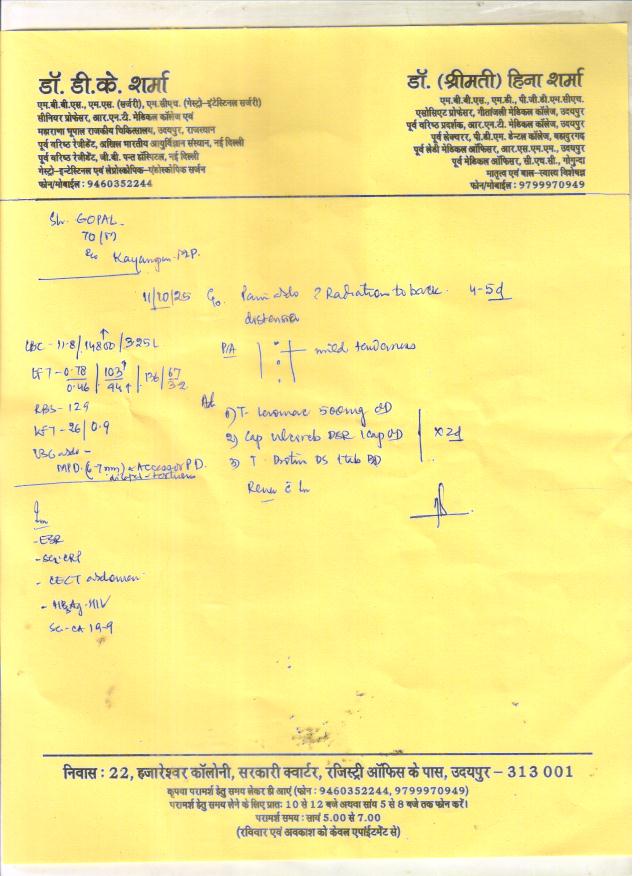 डॉ. डी.के. शर्मा
एम.बी.बी.एस., एम.एस. (सर्जरी), एम.सीएच. (गेस्ट्रो-इंटेस्टिनल सर्जरी)
सीनियर प्रोफेसर, आर.एन.टी. मेडिकल कॉलेज एवं
महाराणा भूपाल राजकीय चिकित्सालय, उदयपुर, राजस्थान
पूर्व वरिष्ठ रेजीडेंट, अखिल भारतीय आयुर्विज्ञान संस्थान, नई दिल्ली
पूर्व वरिष्ठ रेजीडेंट, जी.बी. पन्त हॉस्पिटल, नई दिल्ली
गेस्ट्रो-इन्टेस्टिनल एवं लेप्रोस्कोपिक-एंडोस्कोपिक सर्जन
फोन/मोबाईल : 9460352244
डॉ. (श्रीमती) हिना शर्मा
एम.बी.बी.एस., एम.डी., पी.जी.डी.एम.सीएच.
एसोसिएट प्रोफेसर, गीतांजली मेडिकल कॉलेज, उदयपुर
पूर्व वरिष्ठ प्रदर्शक, आर.एन.टी. मेडिकल कॉलेज, उदयपुर
पूर्व लेक्चरर, पी.डी.एम. डेन्टल कॉलेज, बहादुरगढ़
पूर्व लेडी मेडिकल ऑफिसर, आर.एस.एम.एम., उदयपुर
पूर्व मेडिकल ऑफिसर, सी.एच.सी., गोगुन्दा
मातृत्व एवं बाल-स्वास्थ्य विशेषज्ञ
फोन/मोबाईल : 9799970949
Sh. GOPAL
70/M
MP.
11/10/25 C/o Pain abdo ? Radiation to back 4-5d
distension
CBC - 11.8/14800↑/3.25L
P/A mild tenderness
LFT - 0.78/0.46 / 103↑/94↑ / 136 / 6.7/3.2
RBS - 129
KFT - 26/0.9
USG abdo -
MPD (6-7mm)
Adv
1) T. 500mg OD
2) Cap DSR 1 Cap OD
3) T. DS 1 tab BD
x 2d
Review c̄ Inv
Inv
- ESR
- Sr. CRP
- CECT abdomen
- HBsAg. HIV
Sr. CA 19-9
निवास : 22, हजारेश्वर कॉलोनी, सरकारी क्वार्टर, रजिस्ट्री ऑफिस के पास, उदयपुर – 313 001
कृपया परामर्श हेतु समय लेकर ही आएं (फोन : 9460352244, 9799970949)
परामर्श हेतु समय लेने के लिए प्रातः 10 से 12 बजे अथवा सांय 5 से 8 बजे तक फोन करें।
परामर्श समय : सायं 5.00 से 7.00
(रविवार एवं अवकाश को केवल एपॉईंटमेंट से)